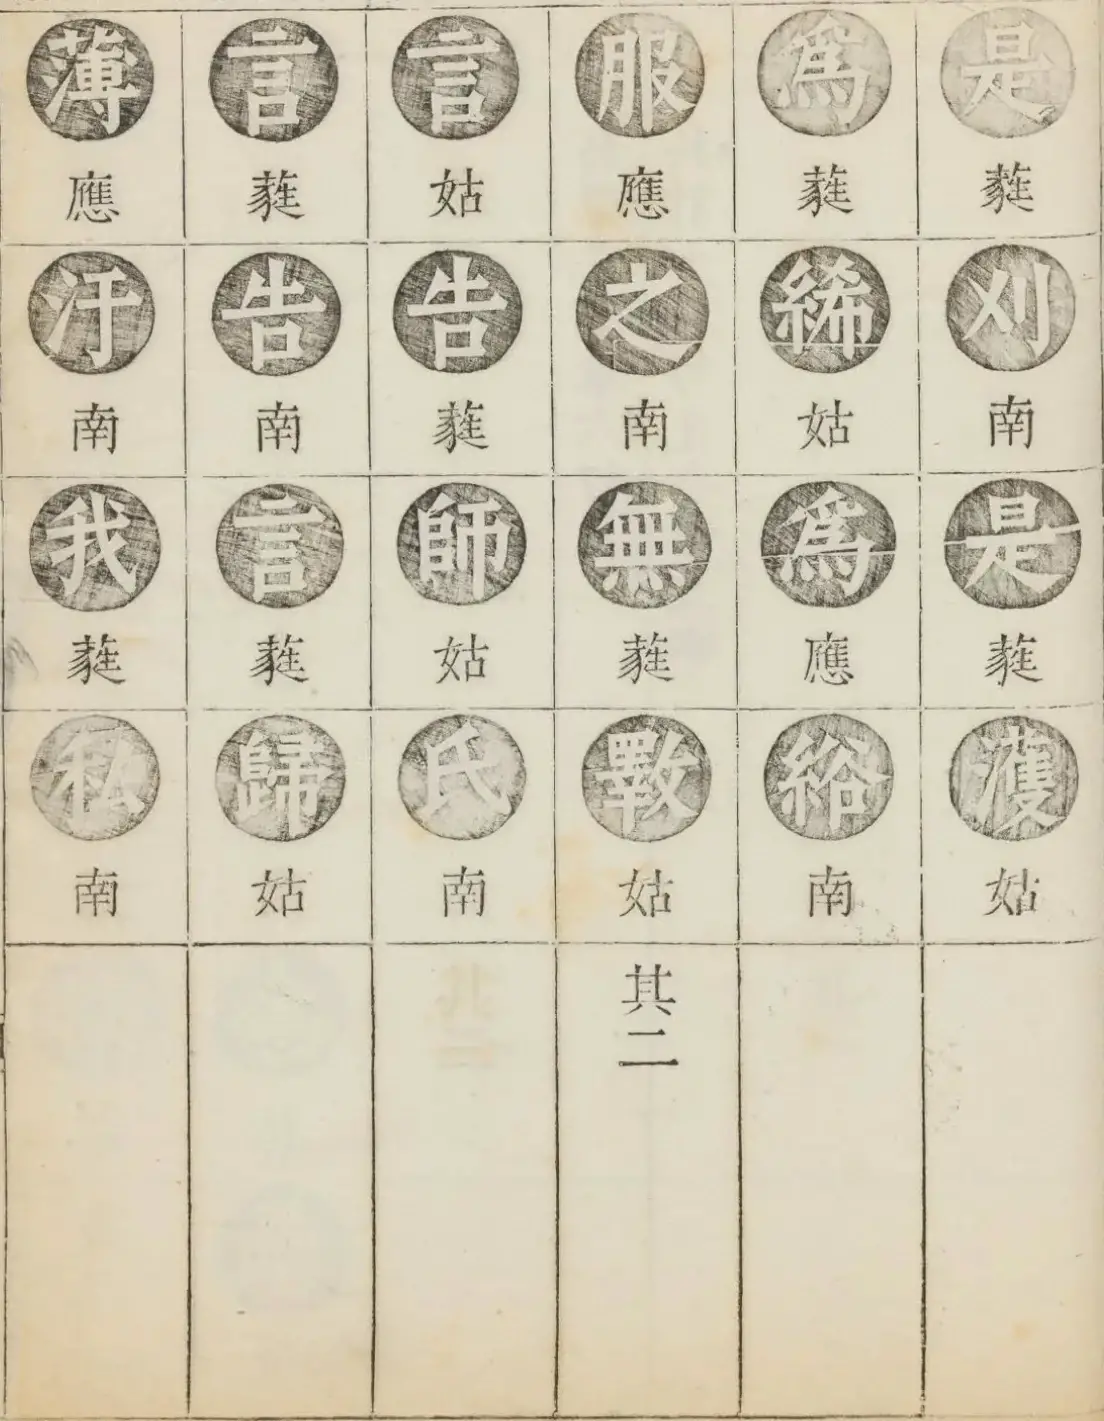 是蕤刈南是蕤濩姑
爲蕤絺姑爲應綌南
服應之南無蕤斁姑其二
言姑告蕤師姑氏南
言蕤告南言蕤歸姑
薄應汙南我蕤私南